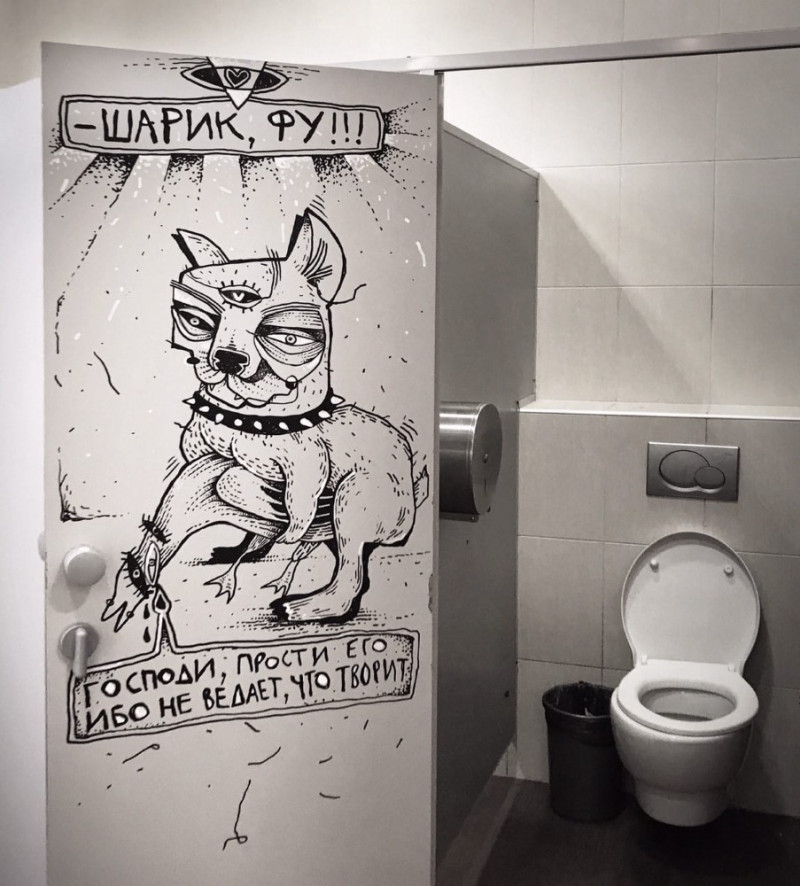 –ШАРИК, ФУ!!!
ГОСПОДИ, ПРОСТИ ЕГО
ИБО НЕ ВЕДАЕТ, ЧТО ТВОРИТ